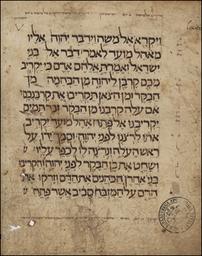 ויקרא אל משה וידבר יהוה אליו
מאהל מועד לאמר דבר אל בני
ישראל ואמרת אלהם אדם כי יקריב
מכם קרבן ליהוה מן הבהמה מן
הבקר ומן הצאן תקריבו את קרבנכם
אם עלה קרבנו מן הבקר זכר תמים
יקריבנו אל פתח אהל מועד יקריב
אתו לרצנו לפני יהוה וסמך ידו על
ראש העלה ונרצה לו לכפר עליו
ושחט את בן הבקר לפני יהוה והקריבו
בני אהרן הכהנים את הדם וזרקו את
הדם על המזבח סביב אשר פתח